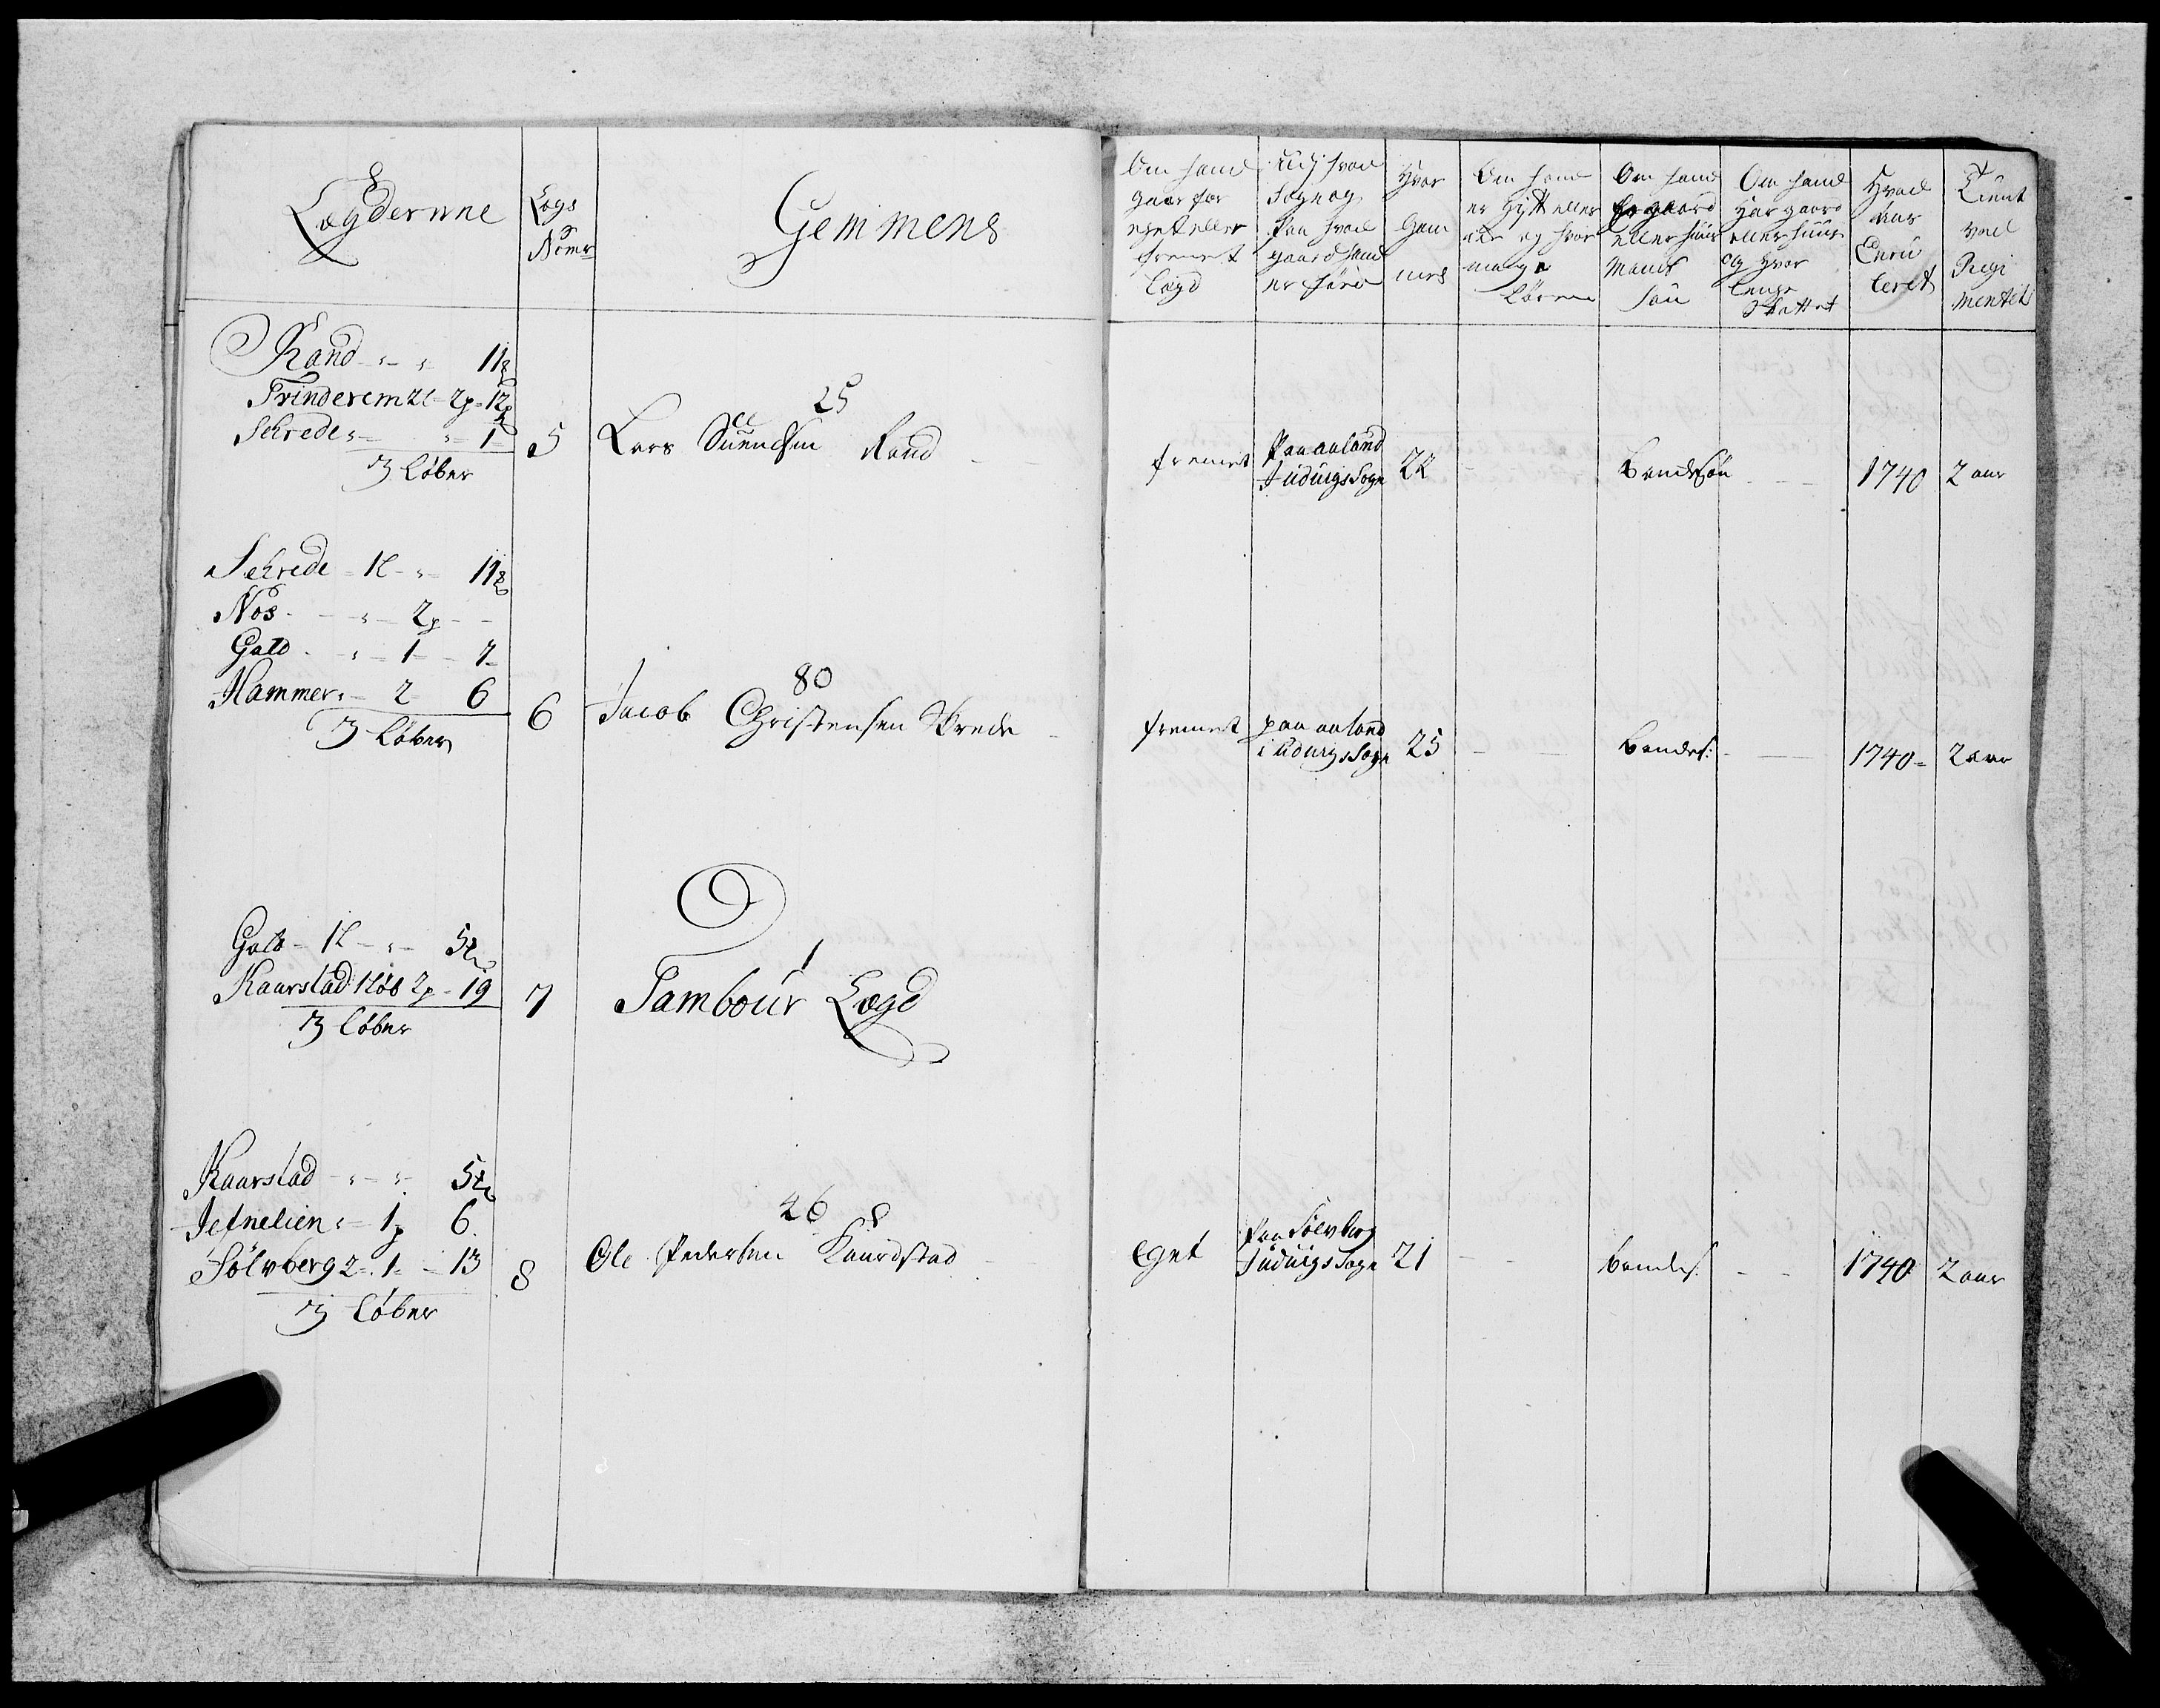 Lægderne
Lægs
Nomr
Gemmens
Om hand
gaar for
eget eller
fremet
Lægd
Udj hvad
Sogn og
Paa hvad
gaard hand
er føed
Hvor
Gam
mel
Om hand
er gift eller
eie og hvor
mange
børn
Om hand
er gaard
eller huus
Mands
Søn
Om hand
Har gaard
eller huus
og hvor
lenge
Hvad
Aar
Enru
leret
Tient
ved
Regi
mentet
Rand 11
Trinderem 2l 2p 12
Schrede 1
3 Løber
5
25
Lars Svendsen Rand
fremet
Paa aaland
Indvigs Sogn
22
Bondesøn
1740
2 aar
Schrede 1l 11
Nos 2p
Gald 1 7
Hammer 2 6
3 Løber
6
80
Jacob Christensen Skrede
fremet
paa aaland
indvigs Sogn
25
bondes:
1740
2 aar
Gald 1l 5
Kaarstad 1løb 2p 19
3 Løber
7
1
Tambour Lægd
Kaarstad 5
Jefnelien 1p 6
Sölvberg 2 1 13
3 Løber
8
26
Ole Pedersen Kaardstad
Eget
Paa Sølvberg
Indvigs Sogn
21
bondes:
1740
2 aar